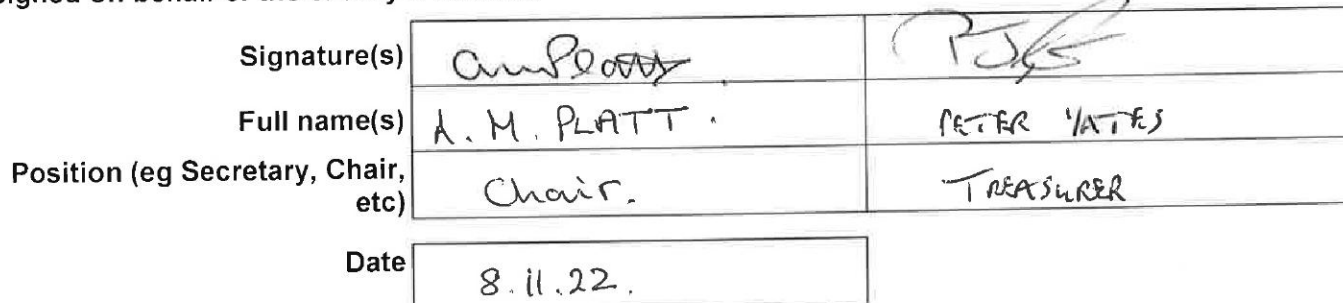 Signature(s)
Full name(s) A. M. PLATT. PETER YATES
Position (eg Secretary, Chair, Chair. TREASURER
etc)
Date 8.11.22.